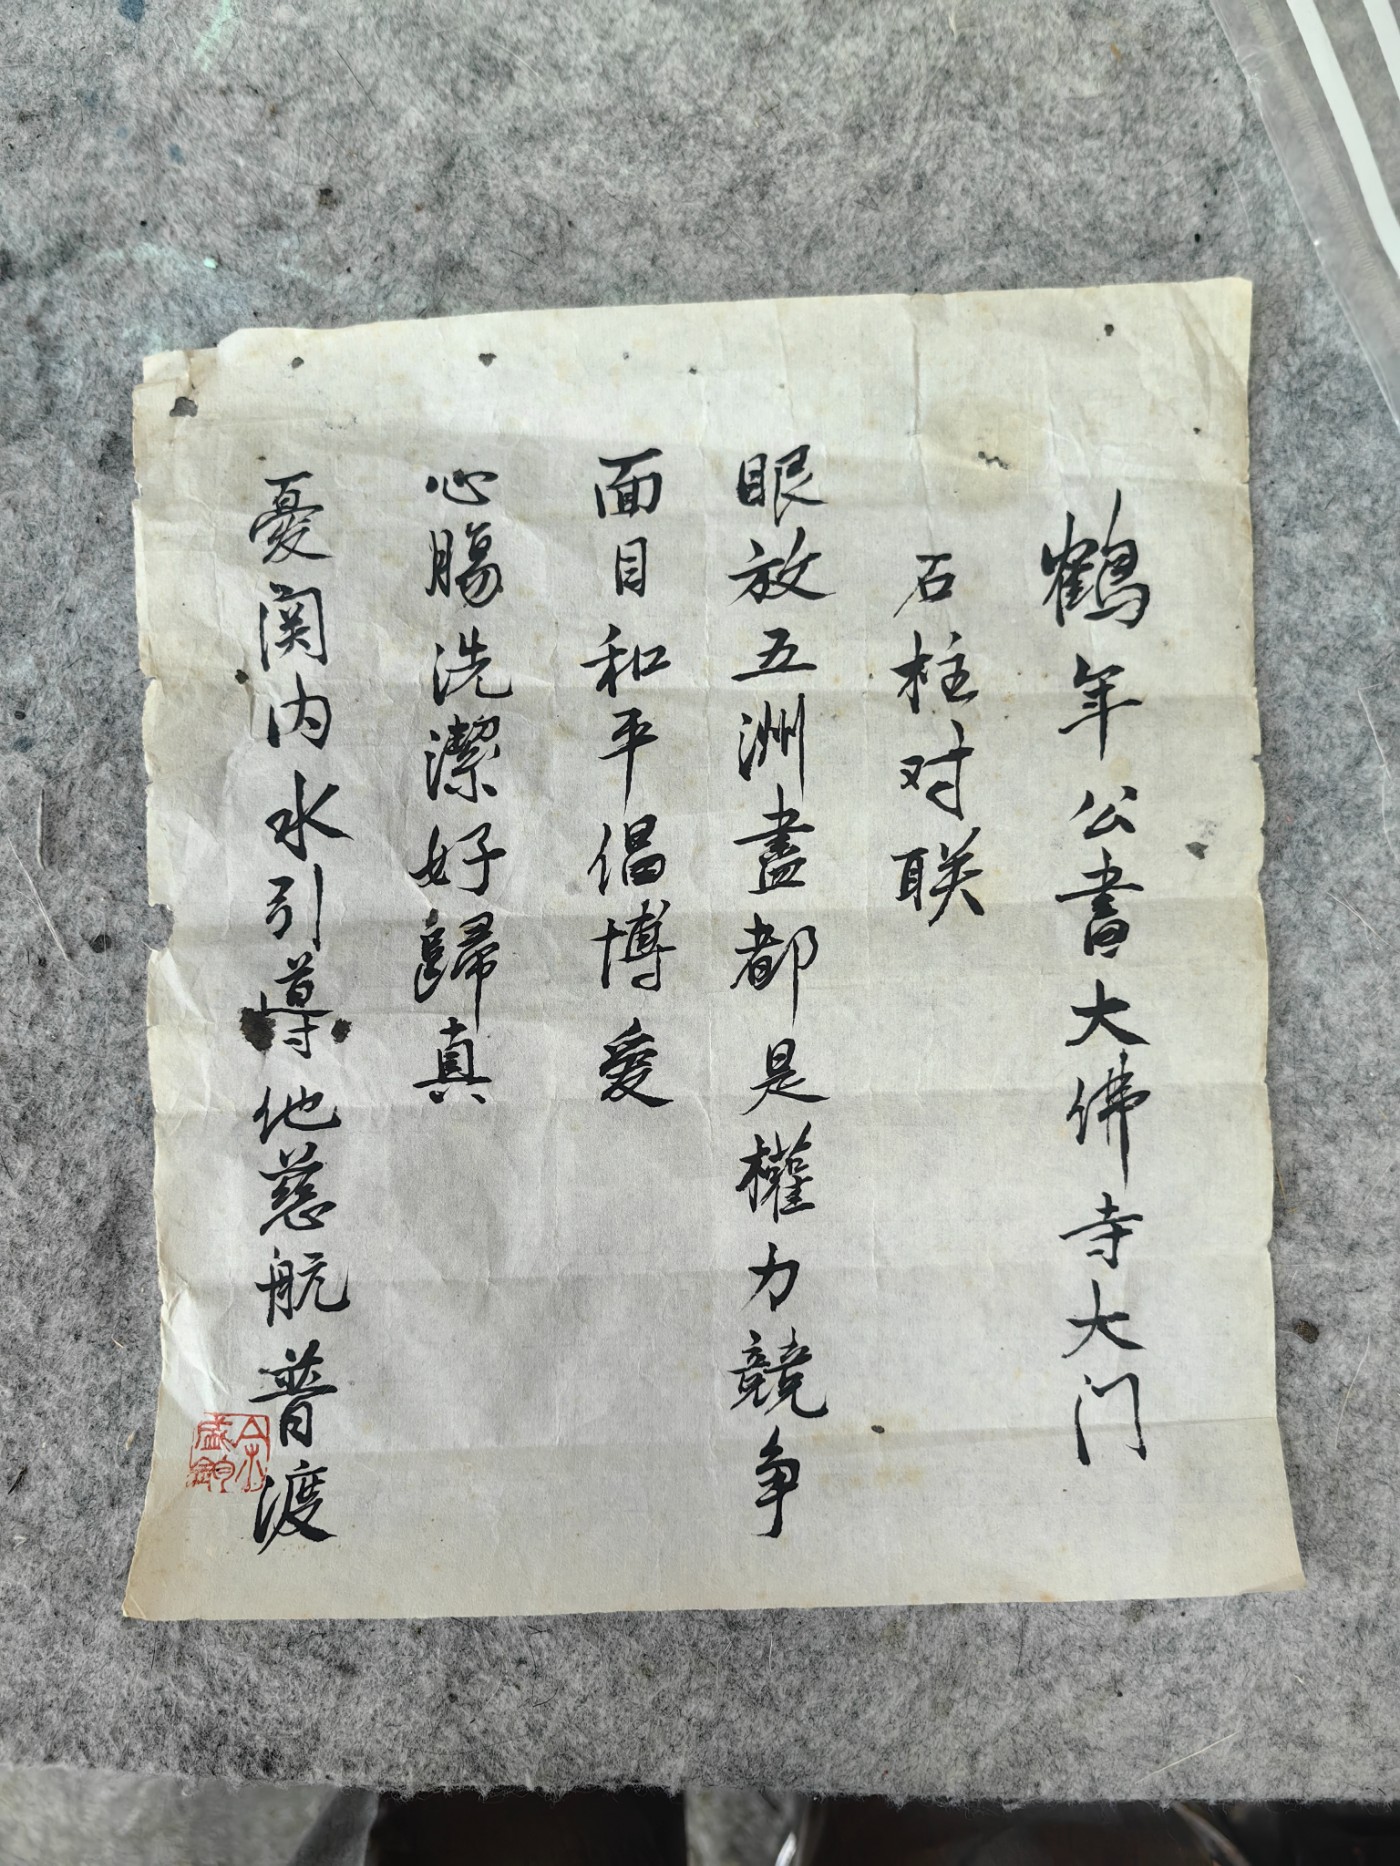 鹤年公書大佛寺大门
石柱对联
眼放五洲盡都是權力競争
面目和平倡博愛
心腸洗潔好歸真
憂関内水引導他慈航普渡
余盛鈞